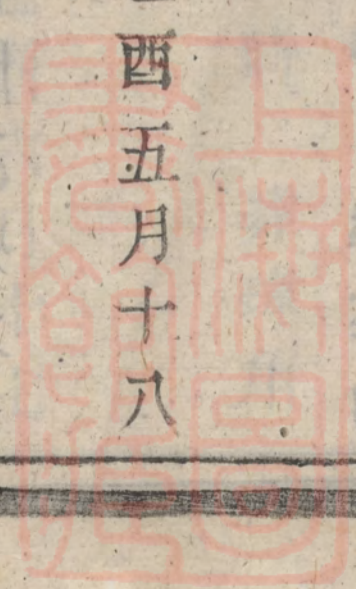 酉五月十八
上海圖
書館藏